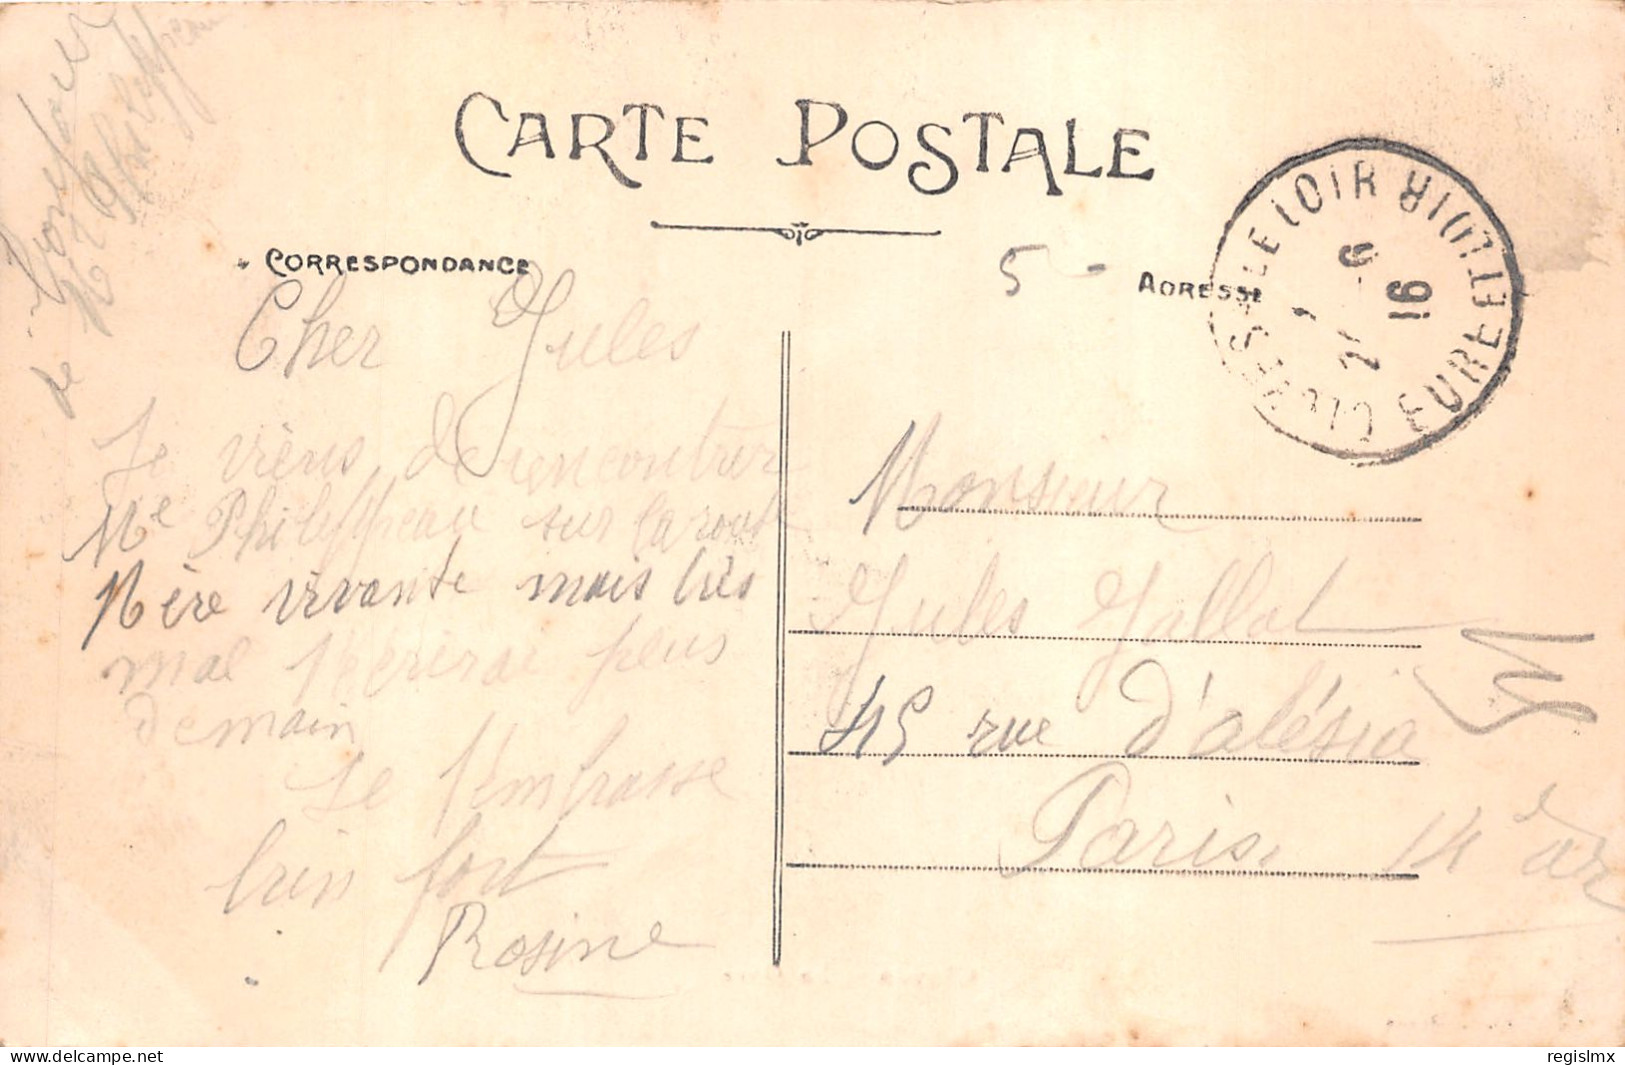 CARTE POSTALE
CORRESPONDANCE
ADRESSE
5 -
CLOYES-S-LE LOIR
EURE ET LOIR
16
Cher Jules
Je viens de rencontrer
Me Philippeau sur la route
Mère vivante mais très
mal t'écrirai plus
demain
Je t'embrasse
bien fort
Rosine
Monsieur
Jules Gallot
45 rue d'alésia
Paris 14e arr
de
Philippeau
delcampe.net
regislmx